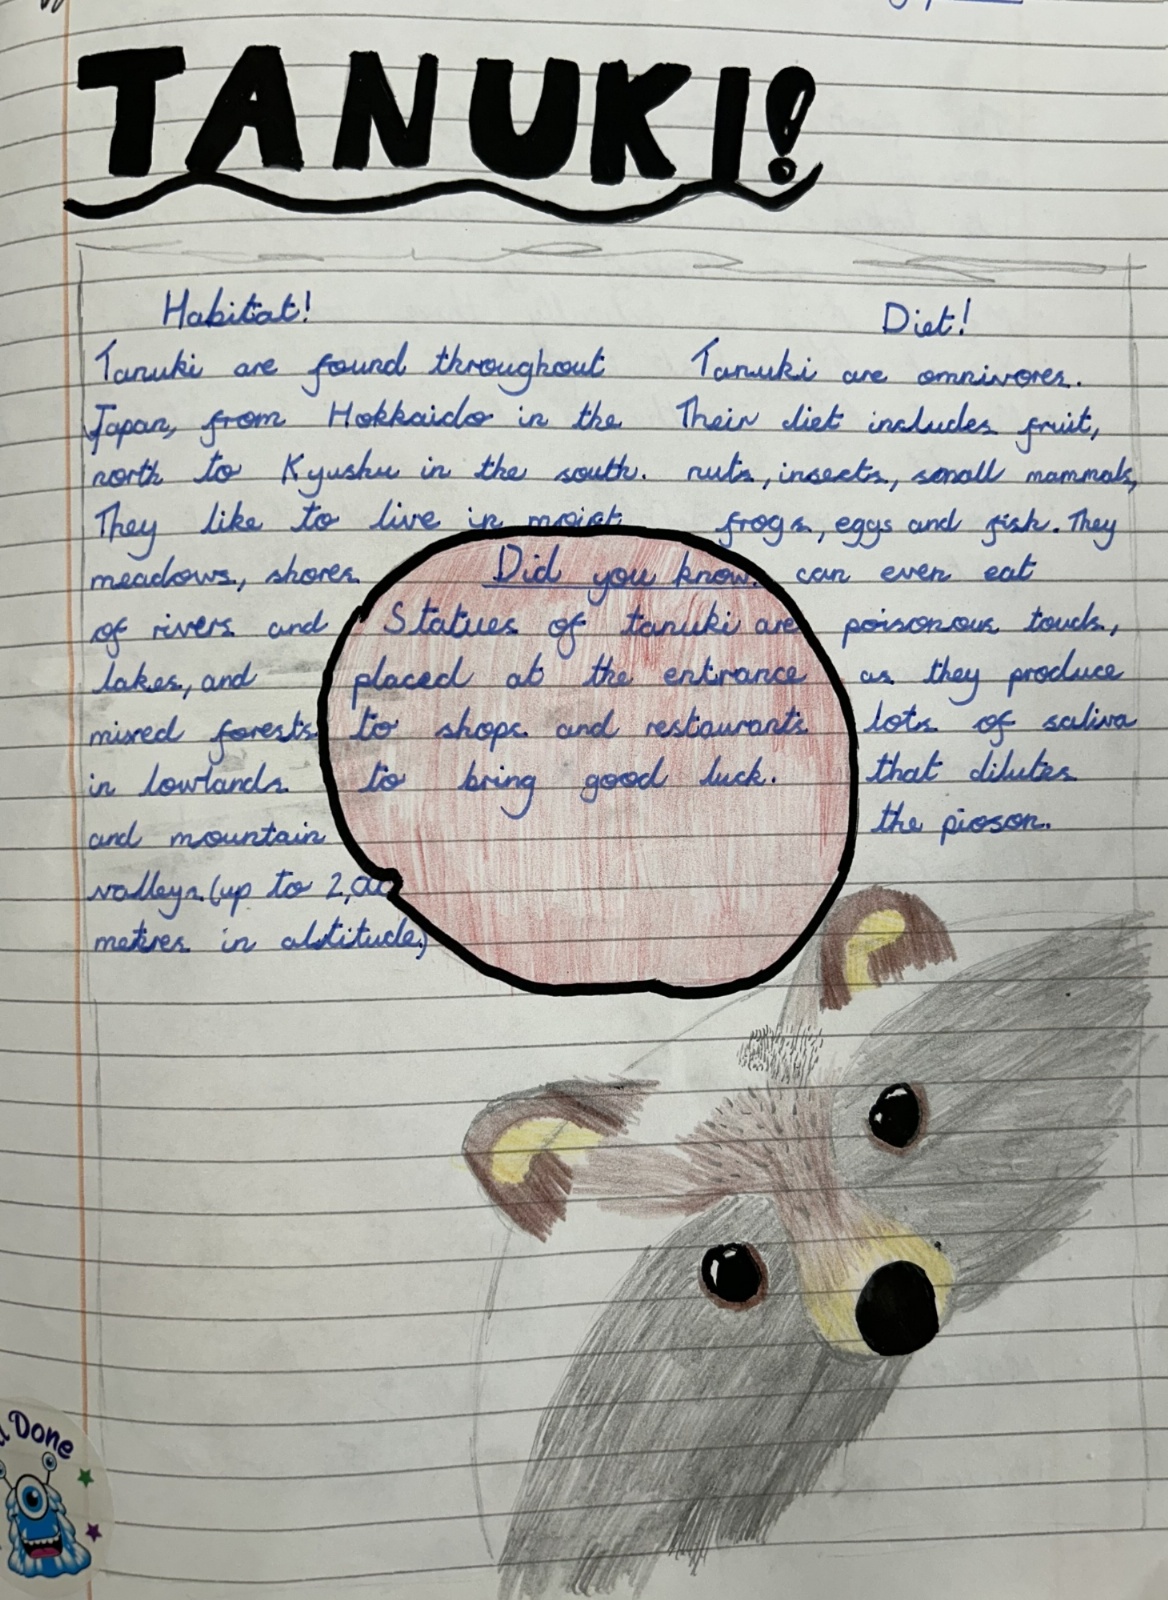 TANUKI!
Habitat!
Tanuki are found throughout
Japan, from Hokkaido in the
north to Kyushu in the south.
They like to live in moist
meadows, shores
of rivers and
lakes, and
mixed forests
in lowlands
and mountain
valleys (up to 2,00
metres in altitude)
Diet!
Tanuki are omnivores.
Their diet includes fruit,
nuts, insects, small mammals,
frogs, eggs and fish. They
can even eat
poisonous toads,
as they produce
lots of saliva
that dilutes
the pioson.
Did you know.
Statues of tanuki are
placed at the entrance
to shops and restaurants
to bring good luck.
Done